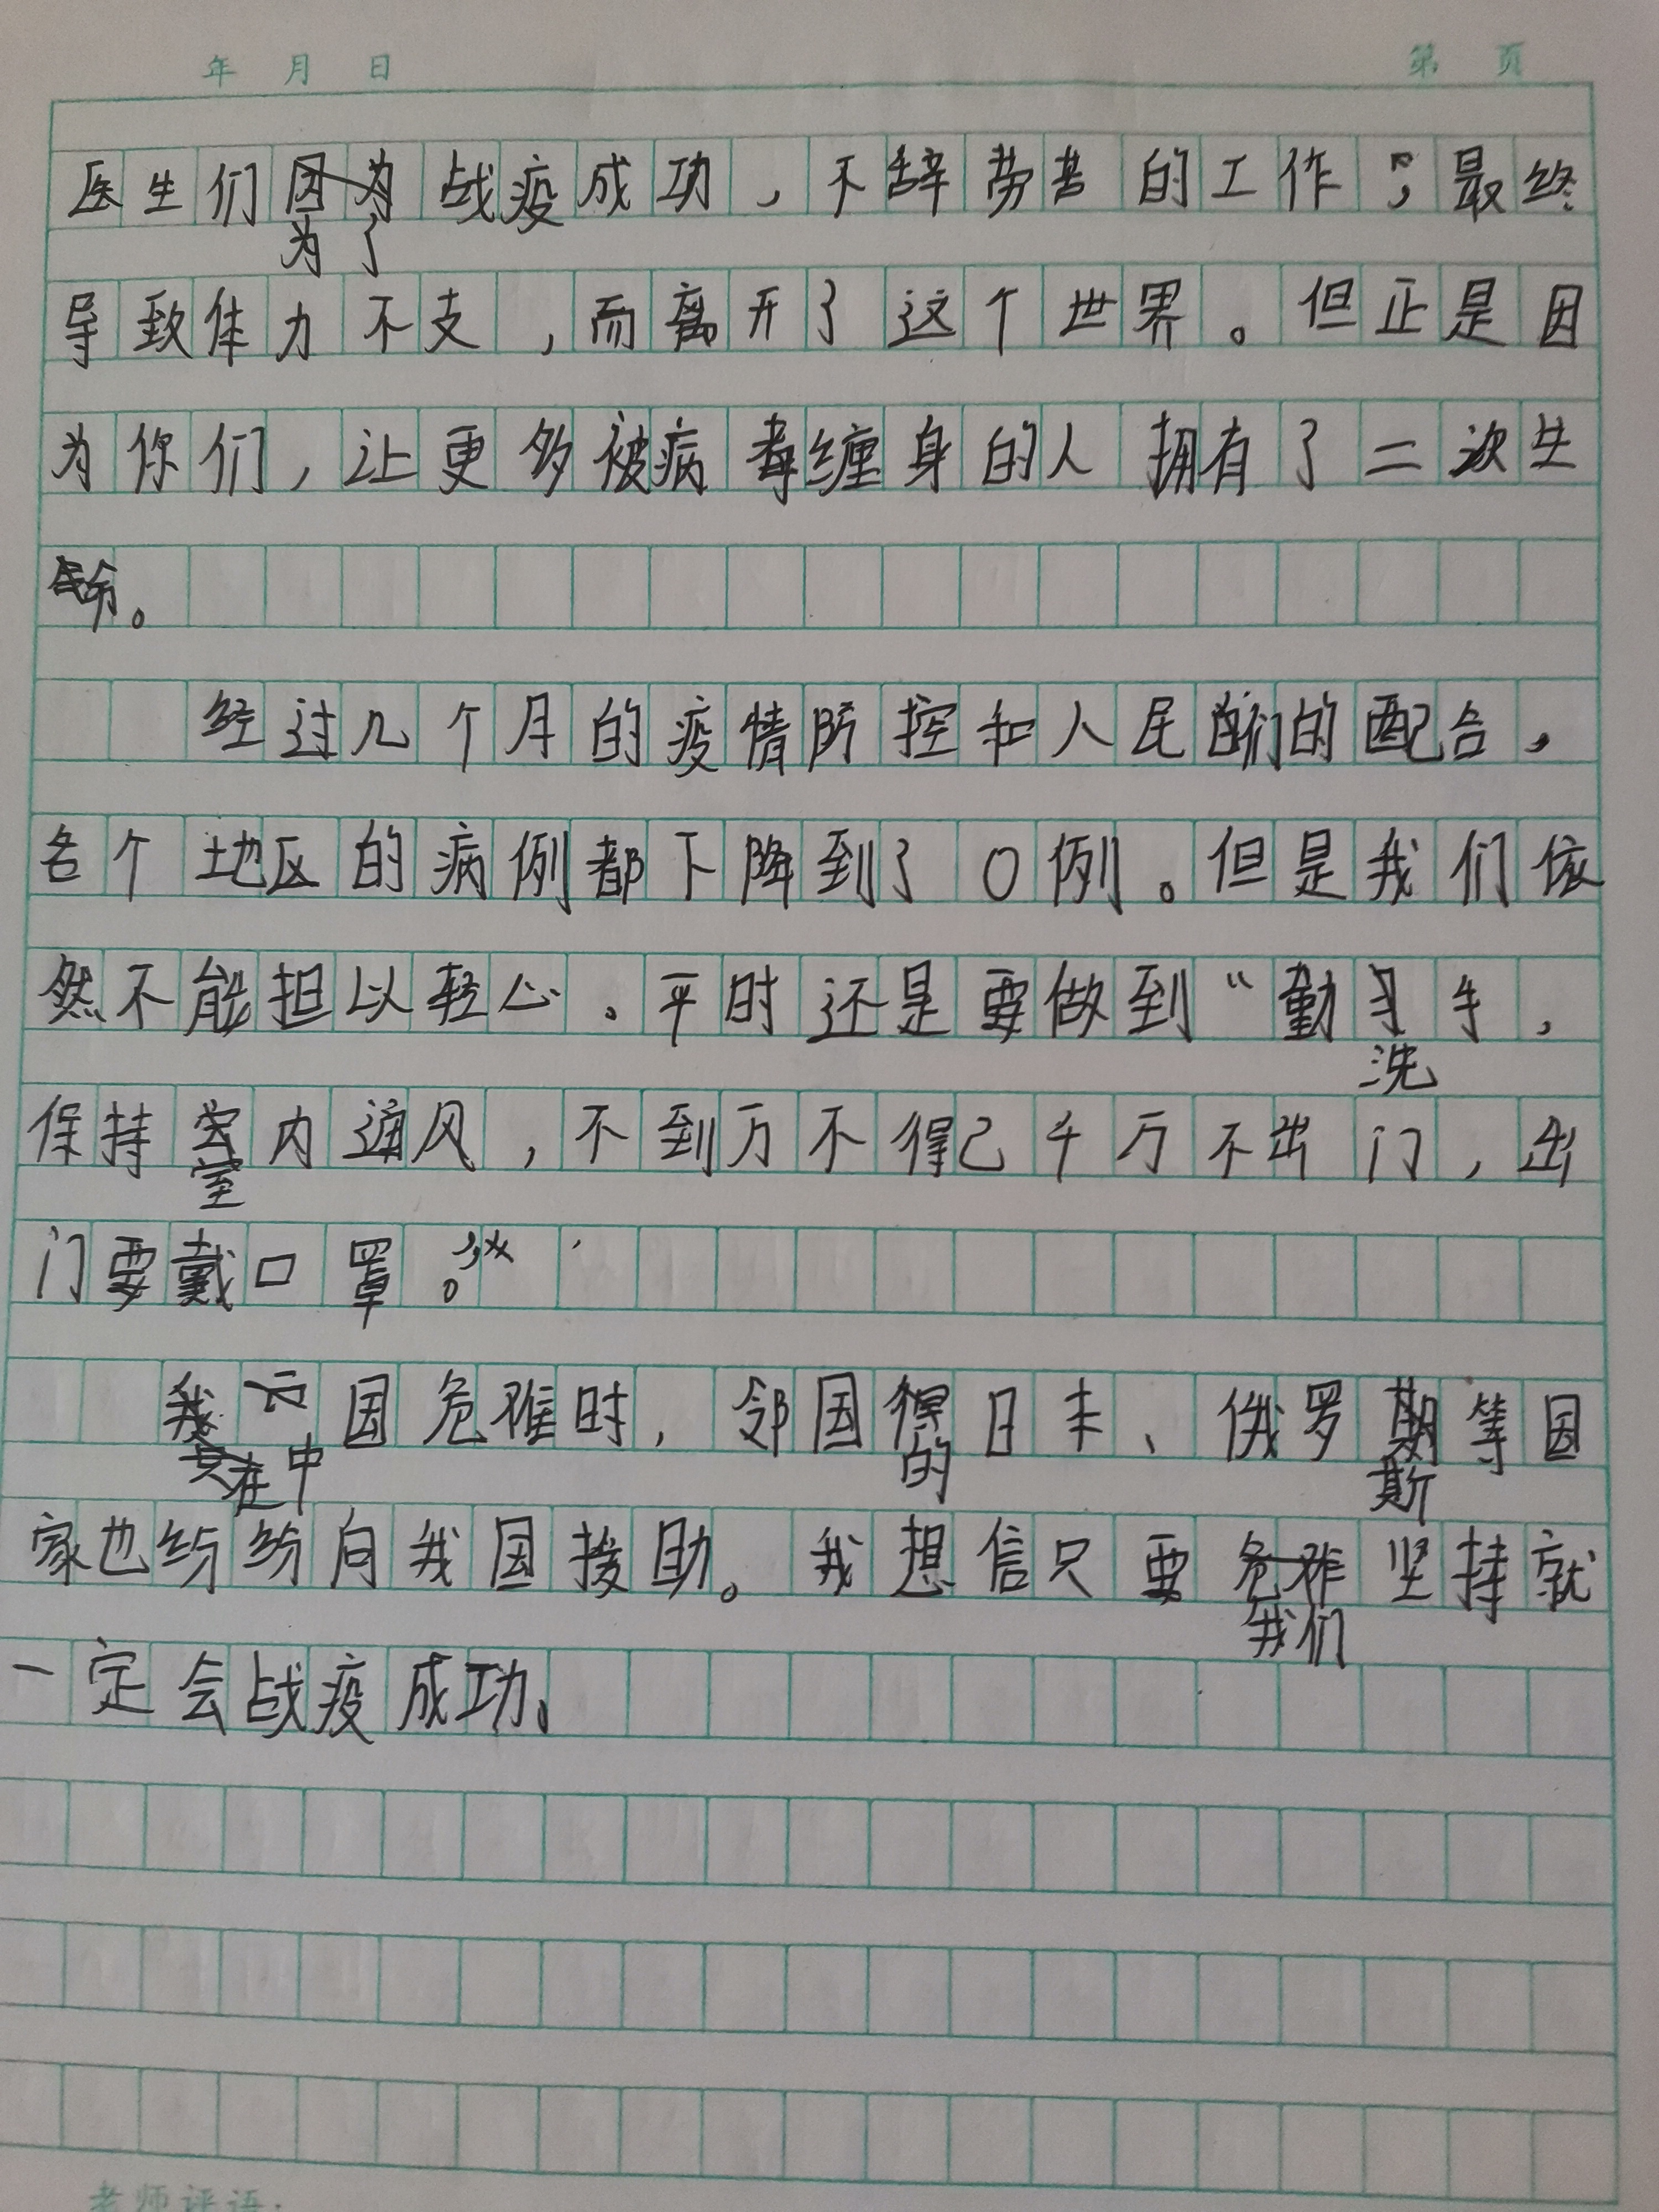 年 月 日
第 页
医生们因为战疫成功，不辞劳苦的工作，最终
为了
导致体力不支，而离开了这个世界。但正是因
为你们，让更多被病毒缠身的人拥有了二次生
命。
经过几个月的疫情防控和人民们的配合，
各个地区的病例都下降到了0例。但是我们依
然不能担以轻心。平时还是要做到“勤手，
洗
保持室内通风，不到万不得己千万不出门，出
室
门要戴口罩。”
我国危难时，邻国得日本、俄罗期等国
在中
的
斯
家也纷纷向我国援助。我想信只要危难坚持就
我们
一定会战疫成功。
老师评语：